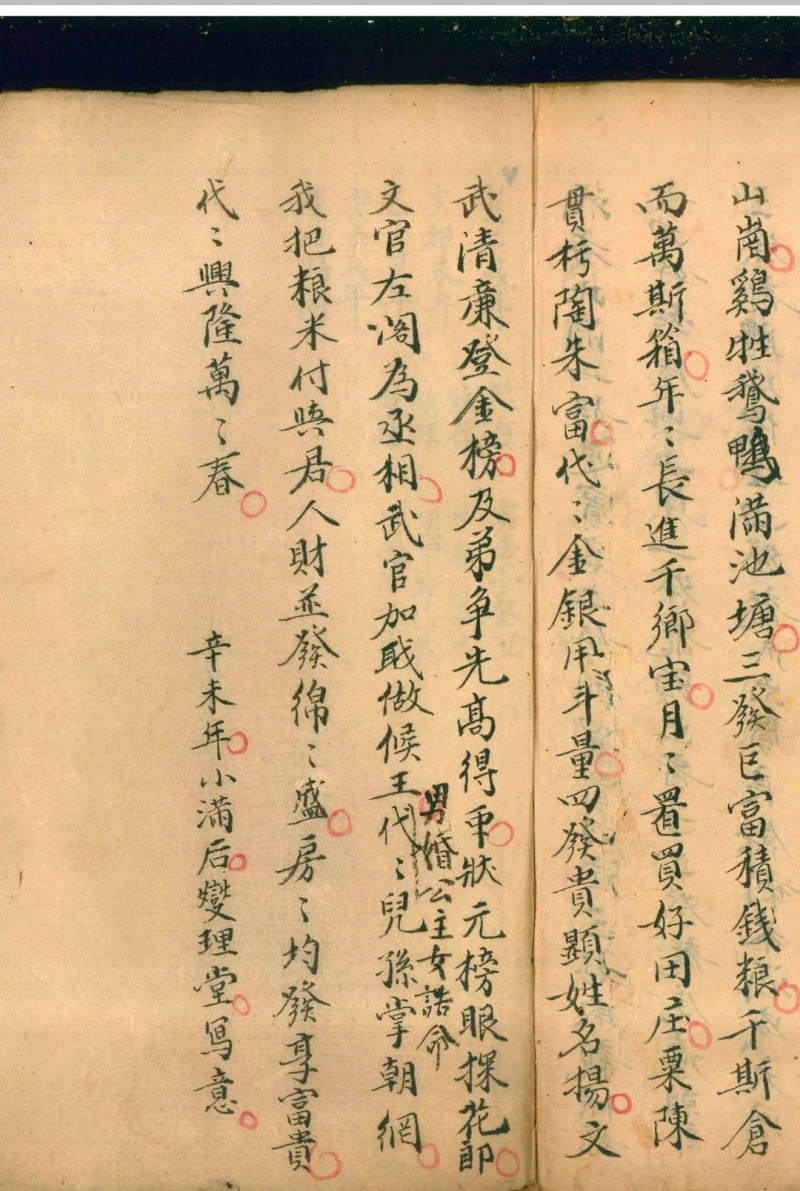 山崗鷄牲鵝鴨滿池塘三發巨富積錢粮千斯倉
而萬斯箱年〻長進千鄉宝月〻置買好田庄粟陳
貫朽陶朱富代〻金銀用斗量四發貴顯姓名揚文
武清廉登金榜及弟争先高得中狀元榜眼探花郎
男婚公主女誥命
文官左阁為丞相武官加戝做候王代〻兒孫掌朝網
我把粮米付與君人財並發綿〻盛房〻均發享富貴
代〻興隆萬〻春
辛未年小滿后燮理堂寫意